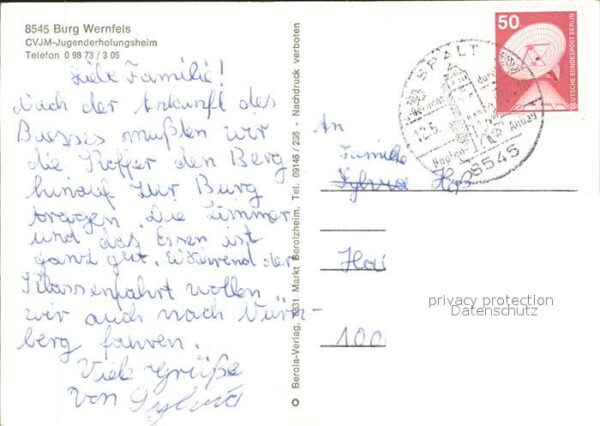 8545 Burg Wernfels
CVJM-Jugenderholungsheim
Telefon 0 98 73 / 3 05
Liebe Familie!
Nach der Ankunft des
Busses mußten wir
die Koffer den Berg
hinauf zur Burg
tragen. Die Zimmer
und das Essen ist
ganz gut. Während der
Klassenfahrt wollen
wir auch nach Nürn-
berg fahren.
Viele Grüße
von Sylvia
Berola-Verlag, 8831 Markt Berolzheim, Tel. 09146/236 - Nachdruck verboten
50
DEUTSCHE BUNDESPOST BERLIN
SPALT
12.5.
Hopfen-
Anbau
8545
An
Familie
Sylvia
100
privacy protection
Datenschutz